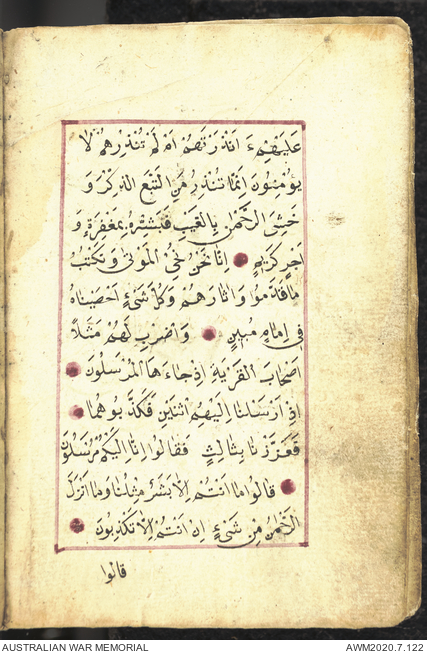 عَلَيْهِمْ ءَ اَنْذَرْتَهُمْ اَمْ لَمْ تُنْذِرْهُمْ لَا
يُؤْمِنُونَ اِنَّمَا تُنْذِرُ مَنِ اتَّبَعَ الذِّكْرَ وَ
خَشِىَ الرَّحْمٰنَ بِالْغَيْبِ فَبَشِّرْهُ بِمَغْفِرَةٍ وَ
اَجْرٍ كَرِيمٍ اِنَّا نَحْنُ نُحْيِ الْمَوْتٰى وَنَكْتُبُ
مَا قَدَّمُوا وَاٰثَارَهُمْ وَكُلَّ شَىْءٍ اَحْصَيْنَاهُ
فِى اِمَامٍ مُبِينٍ وَاضْرِبْ لَهُمْ مَثَلًا
اَصْحَابَ الْقَرْيَةِ اِذْ جَاءَهَا الْمُرْسَلُونَ
اِذْ اَرْسَلْنَا اِلَيْهِمُ اثْنَيْنِ فَكَذَّبُوهُمَا
فَعَزَّزْنَا بِثَالِثٍ فَقَالُوا اِنَّا اِلَيْكُمْ مُرْسَلُونَ
قَالُوا مَا اَنْتُمْ اِلَّا بَشَرٌ مِثْلُنَا وَمَا اَنْزَلَ
الرَّحْمٰنُ مِنْ شَىْءٍ اِنْ اَنْتُمْ اِلَّا تَكْذِبُونَ
قالوا
AUSTRALIAN WAR MEMORIAL AWM2020.7.122